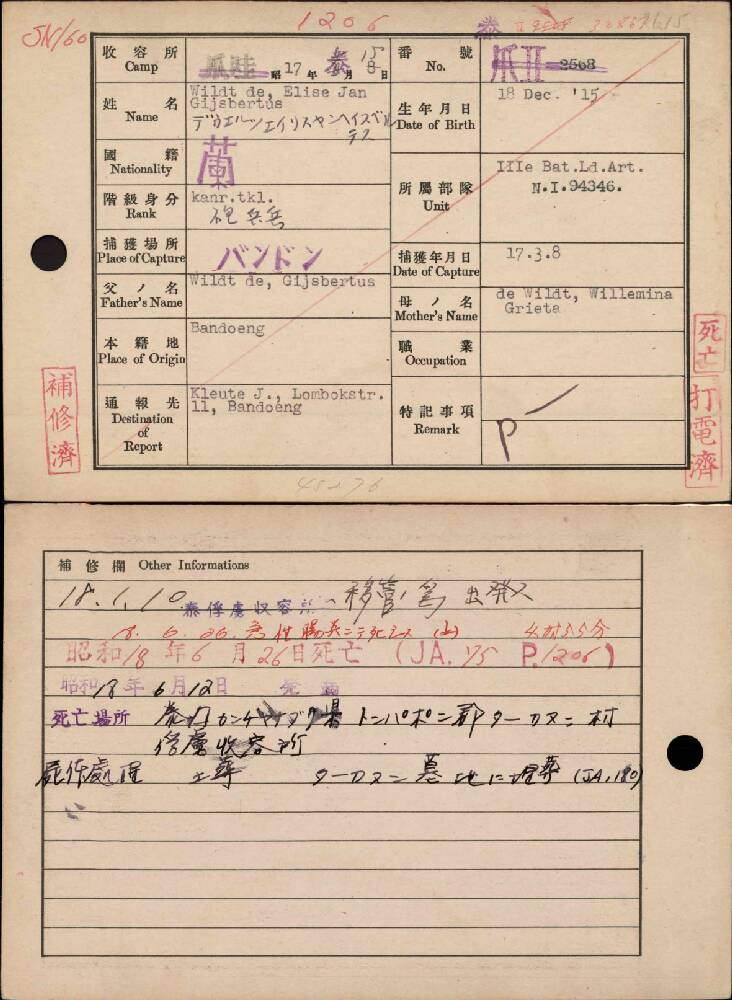 1206
SN/60
收容所 Camp
爪哇 昭17年 月 日
泰 15 8
番號 No.
爪II 2568
姓名 Name
Wildt de, Elise Jan
Gijsbertus
デウエルツエイリスヤンヘイスベル
テス
生年月日 Date of Birth
18 Dec. '15
國籍 Nationality
蘭
所屬部隊 Unit
IIIe Bat.Ld.Art.
N.I.94346.
階級身分 Rank
kanr.tkl.
砲兵兵
捕獲場所 Place of Capture
バンドン
捕獲年月日 Date of Capture
17.3.8
父ノ名 Father's Name
Wildt de, Gijsbertus
母ノ名 Mother's Name
de Wildt, Willemina
Grieta
本籍地 Place of Origin
Bandoeng
職業 Occupation
通報先 Destination of Report
Kleute J., Lombokstr.
11, Bandoeng
特記事項 Remark
P
補修濟
死亡
打電濟
45276
補修欄 Other Informations
18.1.10 泰俘虜収容所ヘ移管ノ為出発ス
18. 6. 26. 急性腸炎ニテ死亡ス 4時55分
昭和18年6月26日死亡 (JA. 75 P.1206)
昭和18年6月12日
死亡場所 泰国カンチヤナブリ県トンパポン郡ターカヌン村
俘虜収容所
屍体處理 土葬 ターカヌン墓地に埋葬 (JA.180)